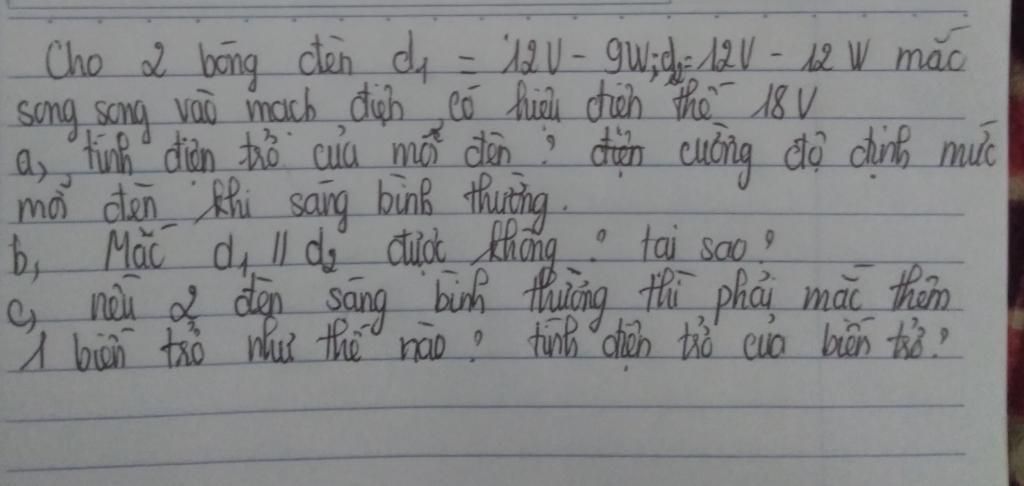 Cho 2 bóng đèn d1 = 12V - 9W; d2 = 12V - 12W mắc
song song vào mạch điện có hiệu điện thế 18V
a, tính điện trở của mỗi đèn? điện cường độ định mức
mỗi đèn khi sáng bình thường.
b, Mắc d1 // d2 được không? tại sao?
c, nếu 2 đèn sáng bình thường thì phải mắc thêm
1 biến trở như thế nào? tính điện trở của biến trở?